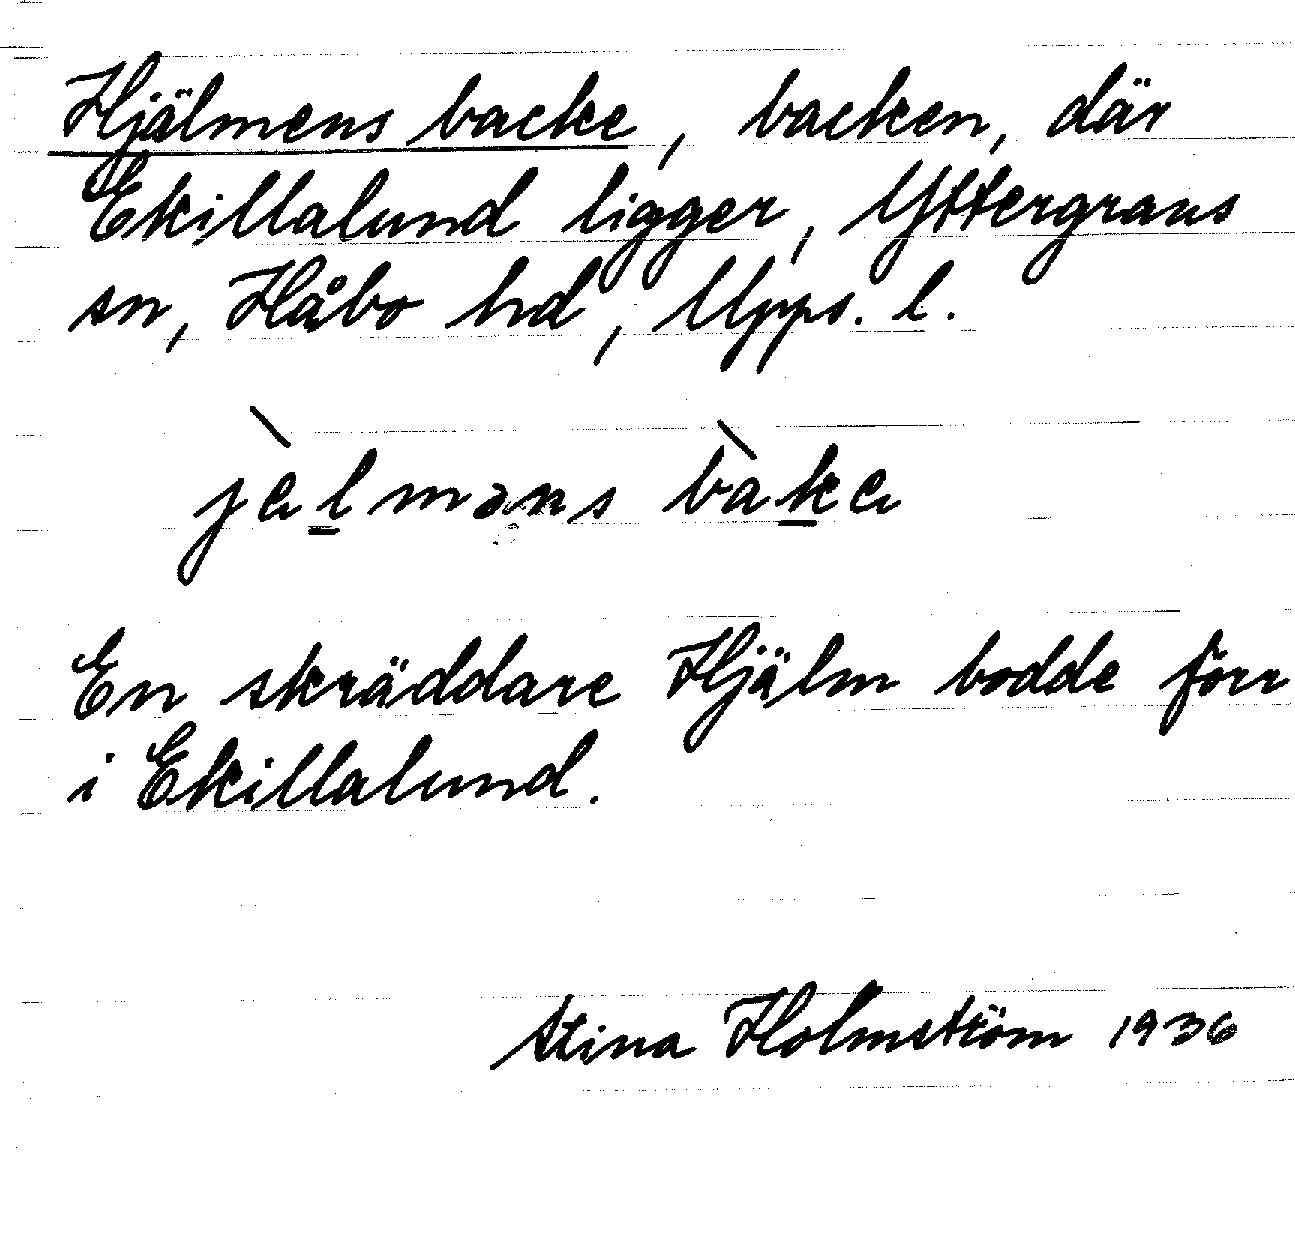 Hjälmens backe, backen, där
Ekillalund ligger, Yttergrans
sn, Håbo hd, Upps. l.
jælməns bakæ
En skräddare Hjälm bodde förr
i Ekillalund.
Stina Holmström 1936